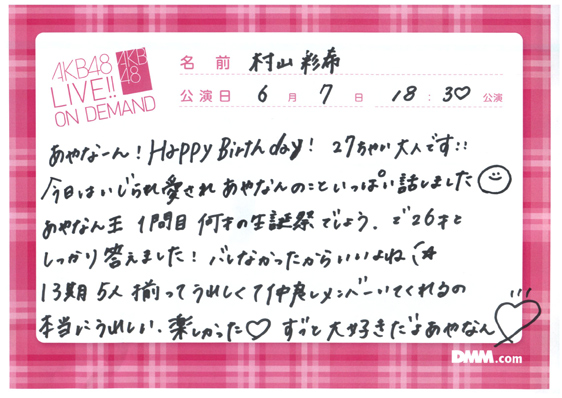 AKB48
LIVE!!
ON DEMAND
AKB
48
名前 村山彩希
公演日 6月7日 18:30♡公演
あやなーん! Happy Birthday! 27ちゃい大人です!!
今日はいじられ愛されあやなんのこといっぱい話しました
あやなん王 1問目 何才の生誕祭でしょう. で26才と
しっかり答えました! バレなかったからいいよね
13期5人揃ってうれしくて仲良しメンバーいてくれるの
本当にうれしい、楽しかった♡ ずっと大好きだよあやなん
DMM.com